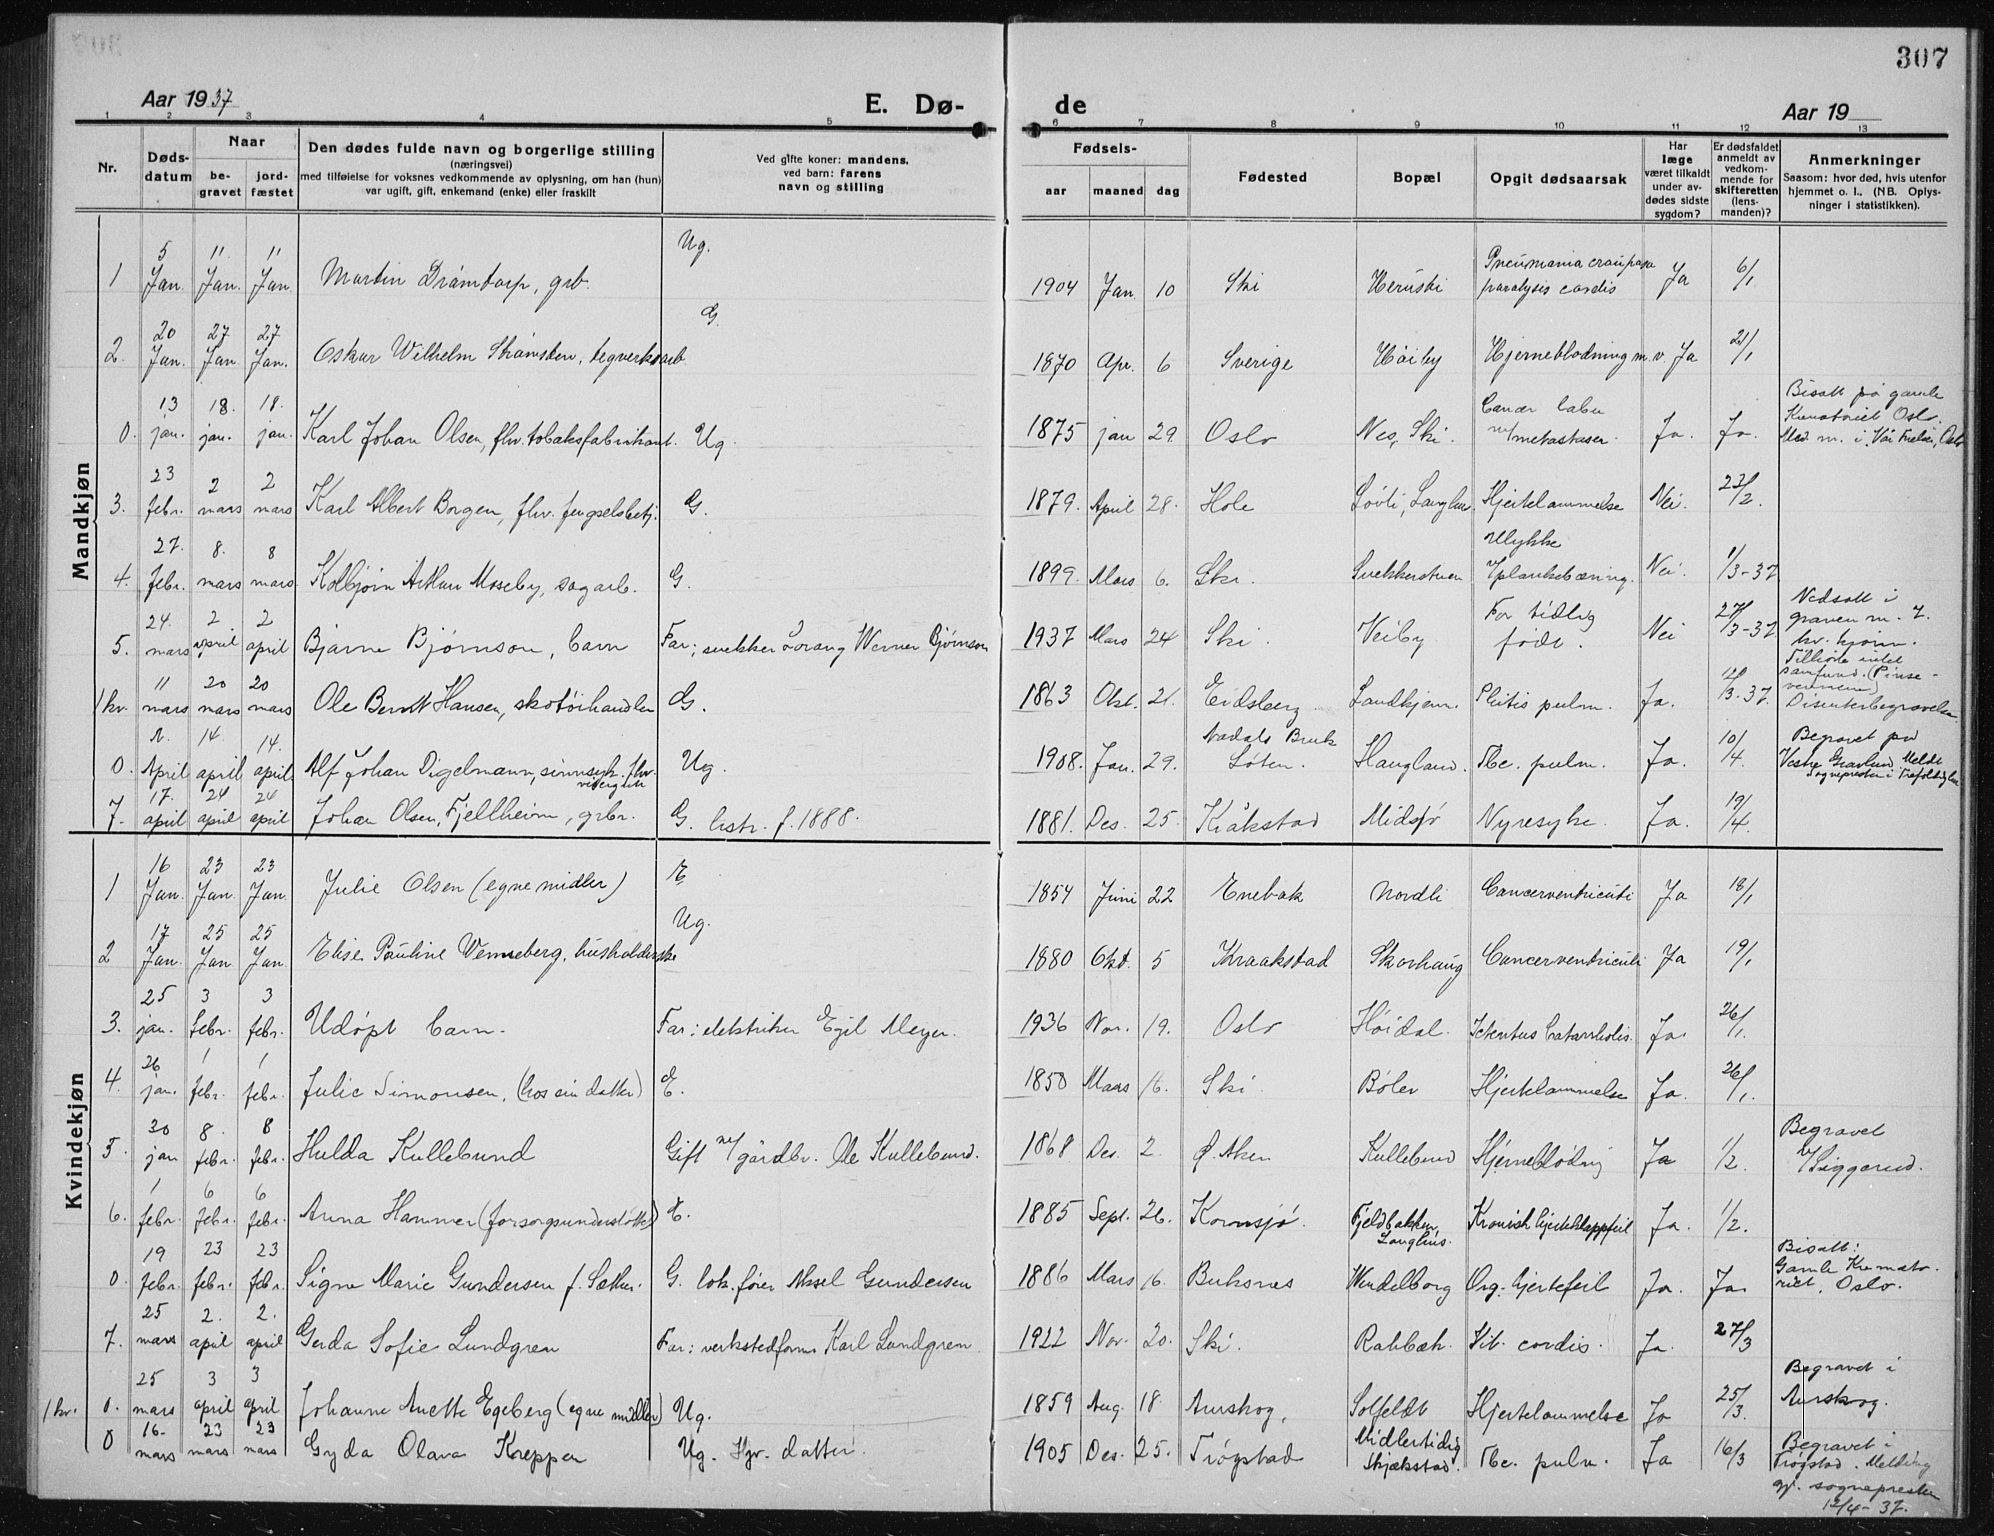 307
Aar 1937 E. Dø- de Aar 19
1 2 3 4 5 6 7 8 9 10 11 12 13
Nr. Dødsdatum Naar begravet jordfæstet Den dødes fulde navn og borgerlige stilling (næringsvei) med tilføielse for voksnes vedkommende av oplysning, om han (hun) var ugift, gift, enkemand (enke) eller fraskilt Ved gifte koner: mandens, ved barn: farens navn og stilling Fødsels- aar maaned dag Fødested Bopæl Opgit dødsaarsak Har læge været tilkaldt under avdødes sidste sygdom? Er dødsfaldet anmeldt av vedkommende for skifteretten (lensmanden)? Anmerkninger Saasom: hvor død, hvis utenfor hjemmet o. l., (NB. Oplysninger i statistikken).
Mandkjøn
1 5 Jan. 11 Jan. 11 Jan. Martin Drømtorp, grb. Ug. 1904 Jan. 10 Ski Kerúski Pneumonia crouposa paralysis cordis Ja 6/1
2. 20 Jan. 27 Jan. 27 Jan. Oskar Wilhelm Strømsten, tegverksarb G. 1870 Apr. 6 Sverige Høiby Hjerneblødning m. v Ja 21/1
0. 13 jan. 18. jan. 18. jan. Karl Johan Olsen, fhv. tobaksfabrikant. Ug. 1875 jan 29. Oslo Nes, Ski. m/ metastaser. Ja. Ja. Bisatt på gamle Krematoriet Oslo. Med m. i Vår Frelser, Oslo
3. 23 febr. 2 mars 2 mars Karl Albert Borgen, fhv. fengselsbetj. G. 1879. April 28. Hole Løvli, Langhus. Hjertelammelse Nei. 23/2.
4. 27. febr. 8. mars 8 mars Kolbjørn Arthur Moseby, sagarb. G. 1899. Mars 6. Ski. Snekkerstuen Ulykke v/plankebæring. Nei. 1/3-37
5. 24. mars 2 april 2 april Bjarne Bjørnson, barn Far; snekker Werner Bjørnson 1937 Mars 24 Ski. Veiby For tidlig født. Nei 27/3-37 Nedsatt i graven m. 7. kv. kjønn.
1 kv. 11 mars 20 mars 20 mars Ole Berndt Hansen, skotøihandler G. 1863 Okt. 21. Eidsberg Sandkjern. Phtis pulm. Ja. 12/3-37. Tilhørte intet samfund. (Pinsevennene) Disenterbegravelse
0. 2. April 14 april 14. april Alf Johan Digelmann, sinnsyk. fhv. visergutt Ug. 1908. Jan. 29. Aadals Bruk Løten. Haugland. Tbc. pulm. Ja. 10/4. Begravet på Vestre Gravlund. Meldt sogneprest i Trefoldighet
7. 17. april 24 april 24 april Johan Olsen, Fjellheim, grbr. G. hstr. f. 1888. 1881. Des. 25. Kråkstad Midsjø Nyresyke. Ja. 19/4.
Kvindekjøn
1 16 Jan. 23 Jan. 23 Jan. Julie Olsen (egne midler) E 1854 Juni 22 Enebak Nordli Cancerventriculi Ja 18/1
2 17 Jan. 25 Jan. 25 Jan. Elise Pauline Wenneberg, husholderske Ug. 1880 Okt. 5 Kraakstad Skovhaug Cancerventriculi Ja 19/1
3. 25 jan. 3 febr. 3 febr. Udøpt barn. Far: elektriker Egil Meyer. 1936 Nov. 19. Oslo Høidal. Icterus Catarrhalis. Ja. 26/1.
4. 26 jan. 1 febr. 1 febr. Julie Simonsen, (hos sin datter) E. 1850 Mars 16. Ski. Bøler Hjertelammelse Ja. 26/1.
5. 30 jan 8. febr. 8 febr. Hulda Kullebund Gift m/ gårdbr. Ole Kullebund. 1868 Des. 2. Ø. Aker Kullebund Hjerneblødnig Ja 1/2. Begravet v/Siggerud.
6. 1 febr. 6 febr. 6 febr. Anna Hammer (forsorgsunderstøttet) E. 1885 Sept. 26. Kornsjø. Fjeldbakken Langhus. Kronisk hjerteklappfeil Ja. 1/2.
0. 19 febr. 23 febr. 23 febr. Signe Marie Gundersen f. Sæther. G. lok. fører Aksel Gundersen 1886 Mars 16. Buksnes Vendelborg Org. hjertefeil Ja. Ja. Bisatt: Gamle Krematoriet, Oslo.
7. 25 mars 2. april 2. april Gerda Sofie Lundgren Far: verkstedform Karl Lundgren 1922 Nov. 20. Ski. Rabbæk. Vit. cordis. Ja. 27/3
1 kv. 0. 25 mars 3 april 3 april Johanne Anette Egeberg (egne midler) Ug. 1859 Aug. 18. Aurskog, Solfeldt Hjertelammelse Ja 25/3. Begravet i Aurskog.
0 16. mars 23 mars 23 mars Gyda Olava Kreppen Ug. Hjv. datter. 1905 Des. 25. Trøgstad Midlertidig Skjækstad. Tbc. pulm. Ja 16/3 Begravet i Trøgstad. Melding gj. sognepresten 12/4-37.